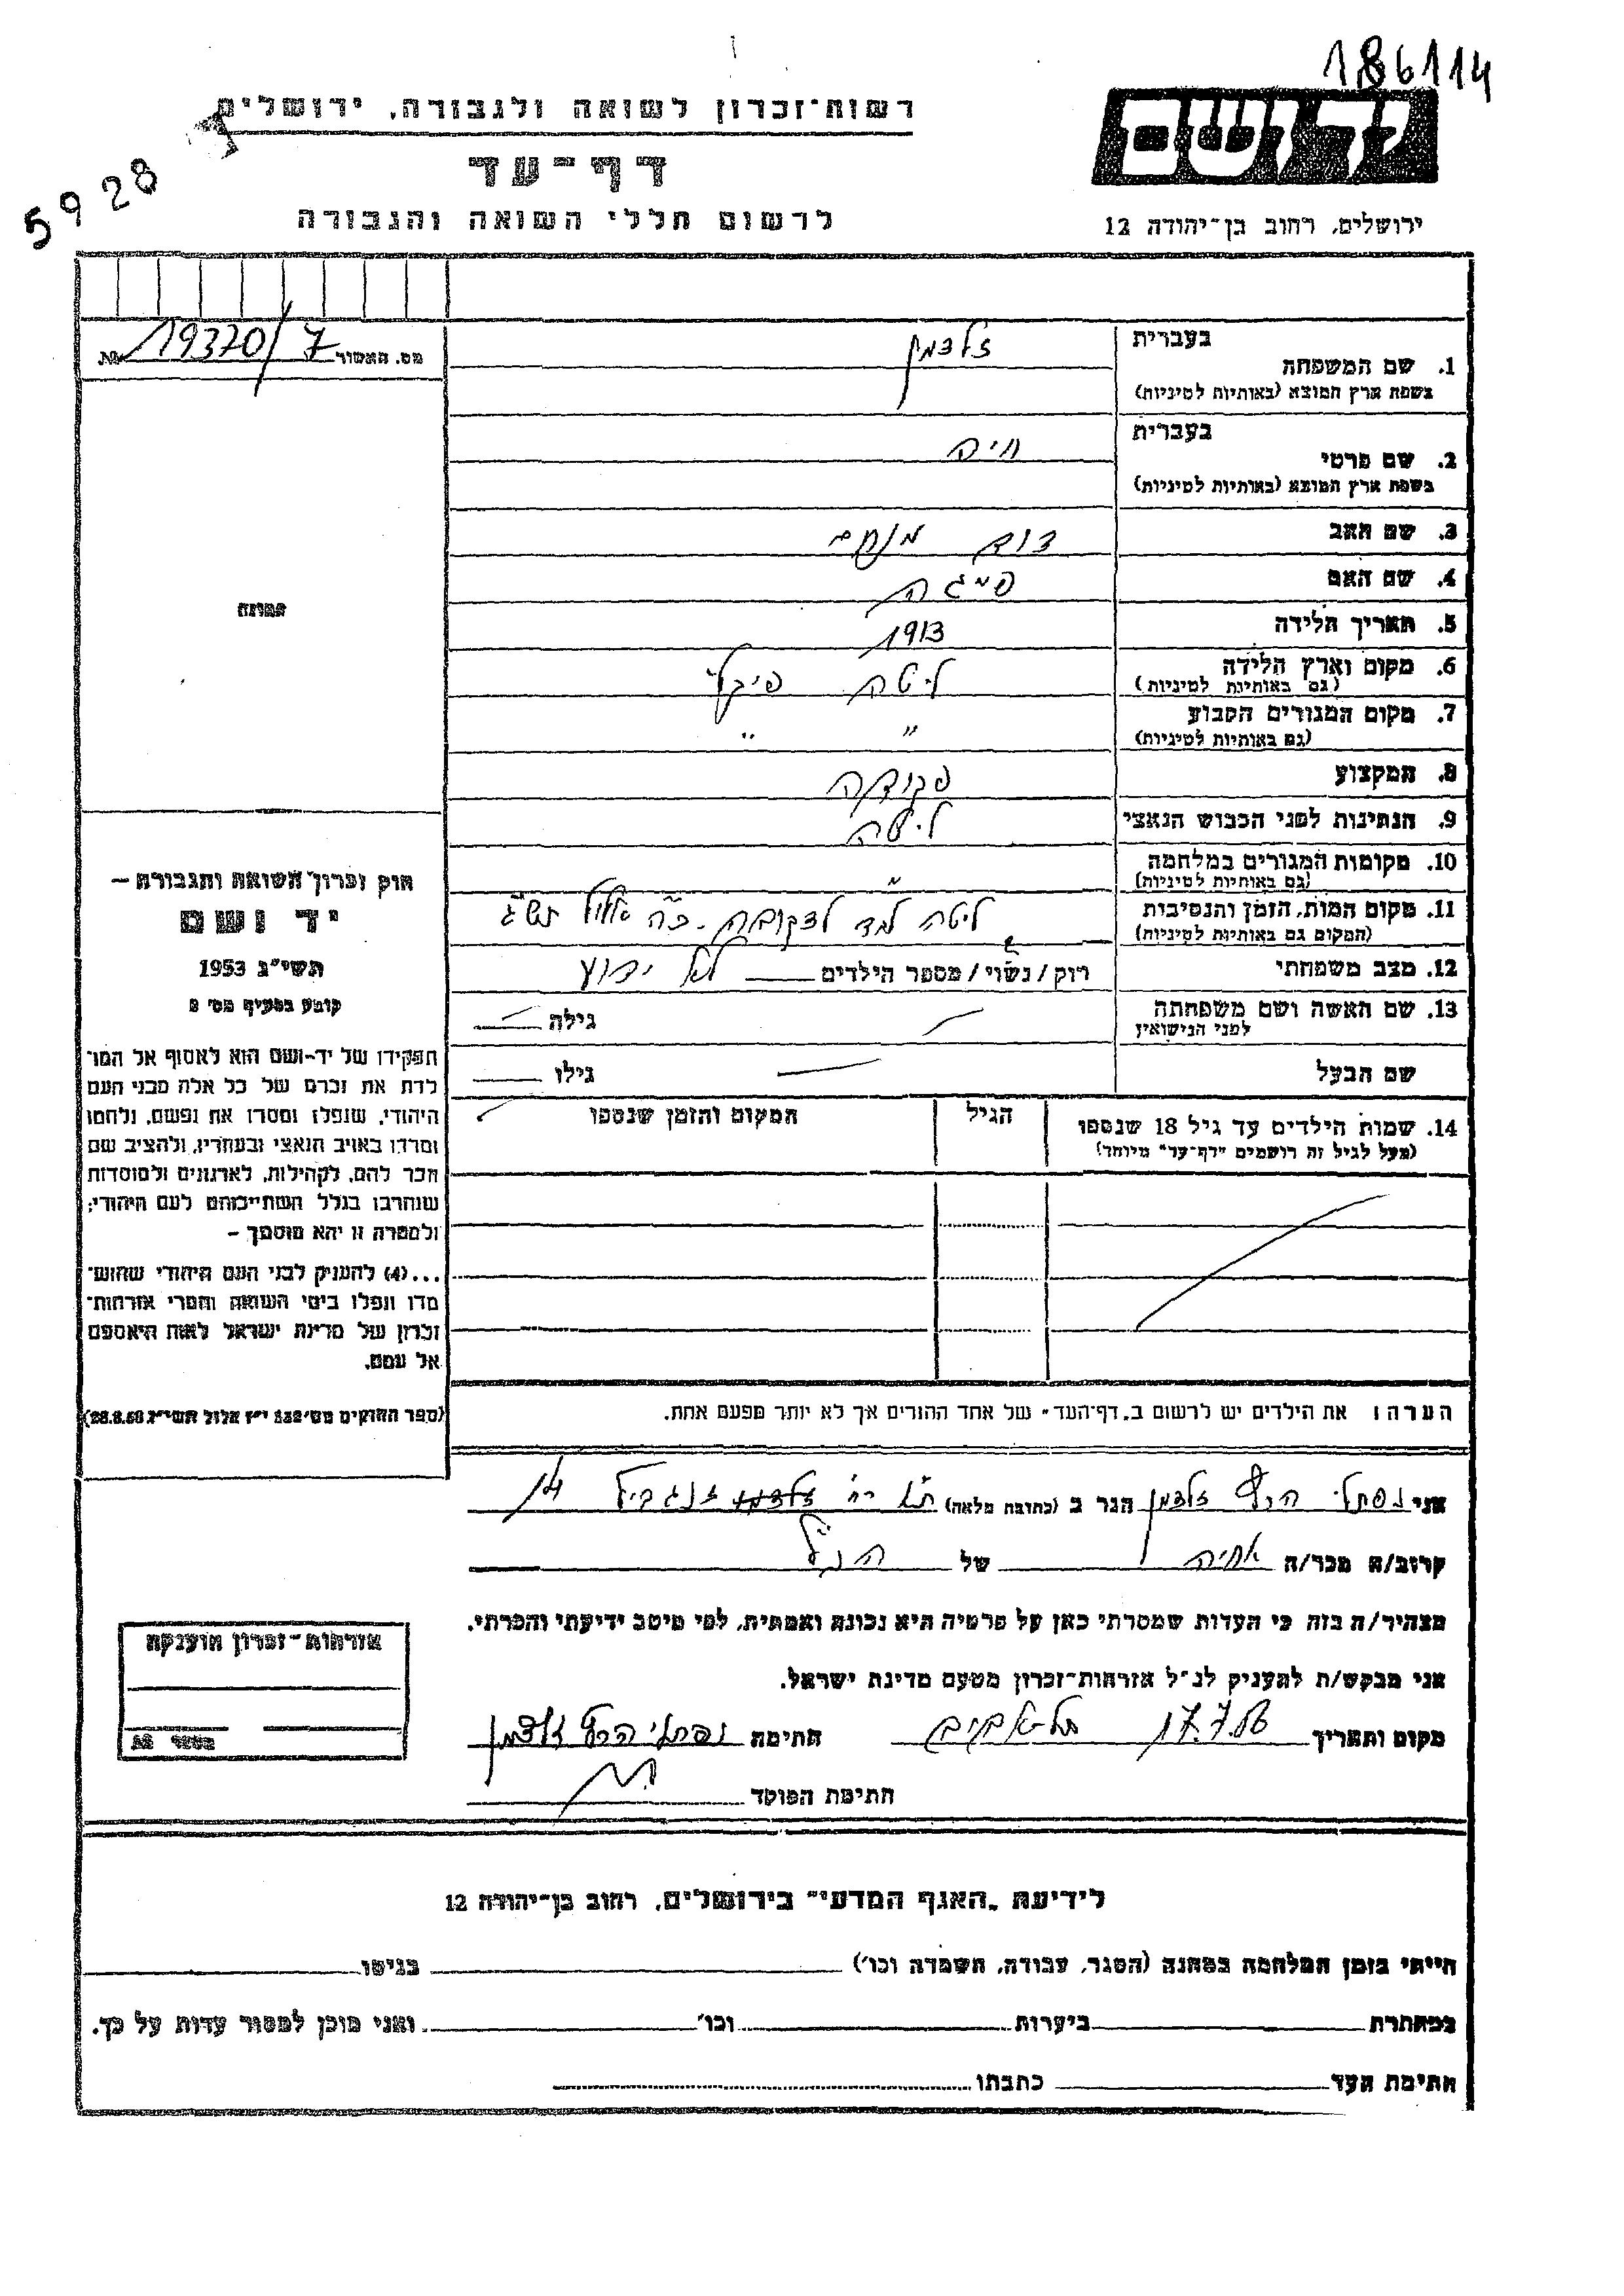 186114
רשות-זכרון לשואה ולגבורה, ירושלים
דף-עד
לרשום חללי השואה והגבורה
ידושם
ירושלים, רחוב בן-יהודה 12
5928
מס. האשור 19370/7 №
בעברית
1. שם המשפחה זלצמן
בשפת ארץ המוצא (באותיות לטיניות)
בעברית
2. שם פרטי חיה
בשפת ארץ המוצא (באותיות לטיניות)
3. שם האב דוד מנחם
4. שם האם פיגה
5. תאריך הלידה 1913
6. מקום וארץ הלידה ליטה
(גם באותיות לטיניות)
7. מקום המגורים הקבוע " "
(גם באותיות לטיניות)
8. המקצוע פקידה
9. הנתינות לפני הכבוש הנאצי ליטה
10. מקומות המגורים במלחמה "
(גם באותיות לטיניות)
11. מקום המות, הזמן והנסיבות ליטה אלול תש"ג
(המקום גם באותיות לטיניות)
12. מצב משפחתי רוק/נשוי/מספר הילדים לא ידוע
13. שם האשה ושם משפחתה גילה
לפני הנישואין
שם הבעל גילו
14. שמות הילדים עד גיל 18 שנספו הגיל המקום והזמן שנספו
(מעל לגיל זה רושמים "דף-עד" מיוחד)
הערה: את הילדים יש לרשום ב"דף-העד" של אחד ההורים אך לא יותר מפעם אחת.
תמונה
חוק זכרון השואה והגבורה –
יד ושם
תשי"ג 1953
קובע בסעיף מס' 2
תפקידו של יד-ושם הוא לאסוף אל המו־
לדת את זכרם של כל אלה מבני העם
היהודי, שנפלו ומסרו את נפשם, נלחמו
ומרדו באויב הנאצי ובעוזריו, ולהציב שם
וזכר להם, לקהילות, לארגונים ולמוסדות
שנחרבו בגלל השתייכותם לעם היהודי;
ולמטרה זו יהא מוסמך –
...(4) להעניק לבני העם היהודי שהוש־
מדו ונפלו בימי השואה והמרי אזרחות־
זכרון של מדינת ישראל לאות היאספם
אל עמם.
(ספר החוקים מס' 132 י"ז אלול תשי"ג 28.8.53)
אני נפתלי הרץ זלצמן הגר ב (כתובת מלאה) 14
קרוב/ה מכר/ה אחיה של הנ"ל
מצהיר/ה בזה כי העדות שמסרתי כאן על פרטיה היא נכונה ואמתית, לפי מיטב ידיעתי והכרתי.
אני מבקש/ת להעניק לנ"ל אזרחות-זכרון מטעם מדינת ישראל.
מקום ותאריך תל-אביב 17.7.56 חתימת נפתלי הרץ זלצמן
חתימת הפוקד
אזרחות-זכרון הוענקה
מספר №
לידיעת "האגף המדעי" בירושלים, רחוב בן-יהודה 12
הייתי בזמן המלחמה במחנה (הסגר, עבודה, השמדה וכו') בגיטו
במחתרת ביערות וכו' ואני מוכן למסור עדות על כך.
חתימת העד כתבתו